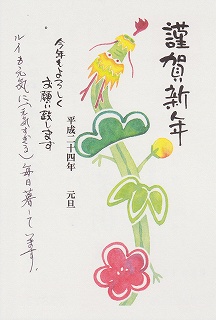 謹賀新年
今年もよろしく
お願い致します
平成二十四年 元旦
ルイも元気に(元気すぎる)毎日暮しています。